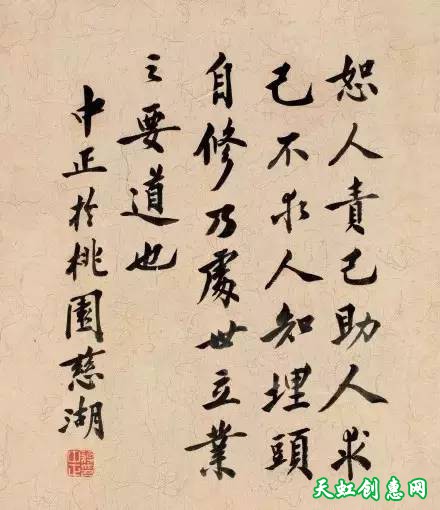 恕人責己助人求
己不求人知埋頭
自修乃處世立業
之要道也
中正於桃園慈湖
天虹创惠网